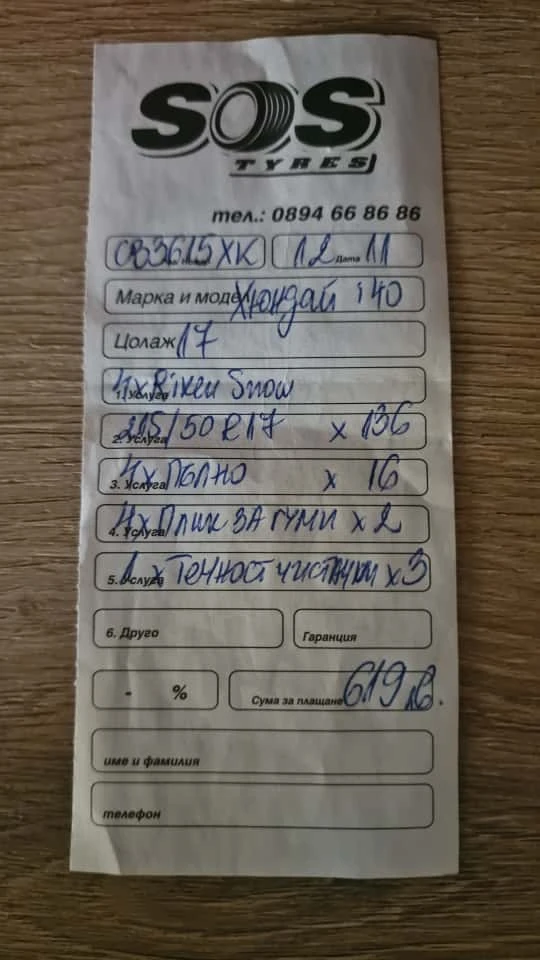 SOS
TYRES
тел.: 0894 66 86 86
СВ3615ХК 12 Дата 11
Марка и модел Хюндай i40
Цолаж 17
1. Услуга 4x Riken Snow
2. Услуга 215/50 R17 x 136
3. Услуга 4x Пълно x 16
4. Услуга 4x Плик ЗА гуми x 2
5. Услуга 1 x Течност чистачки x 3
6. Друго Гаранция
- % Сума за плащане 619 лв.
име и фамилия
телефон